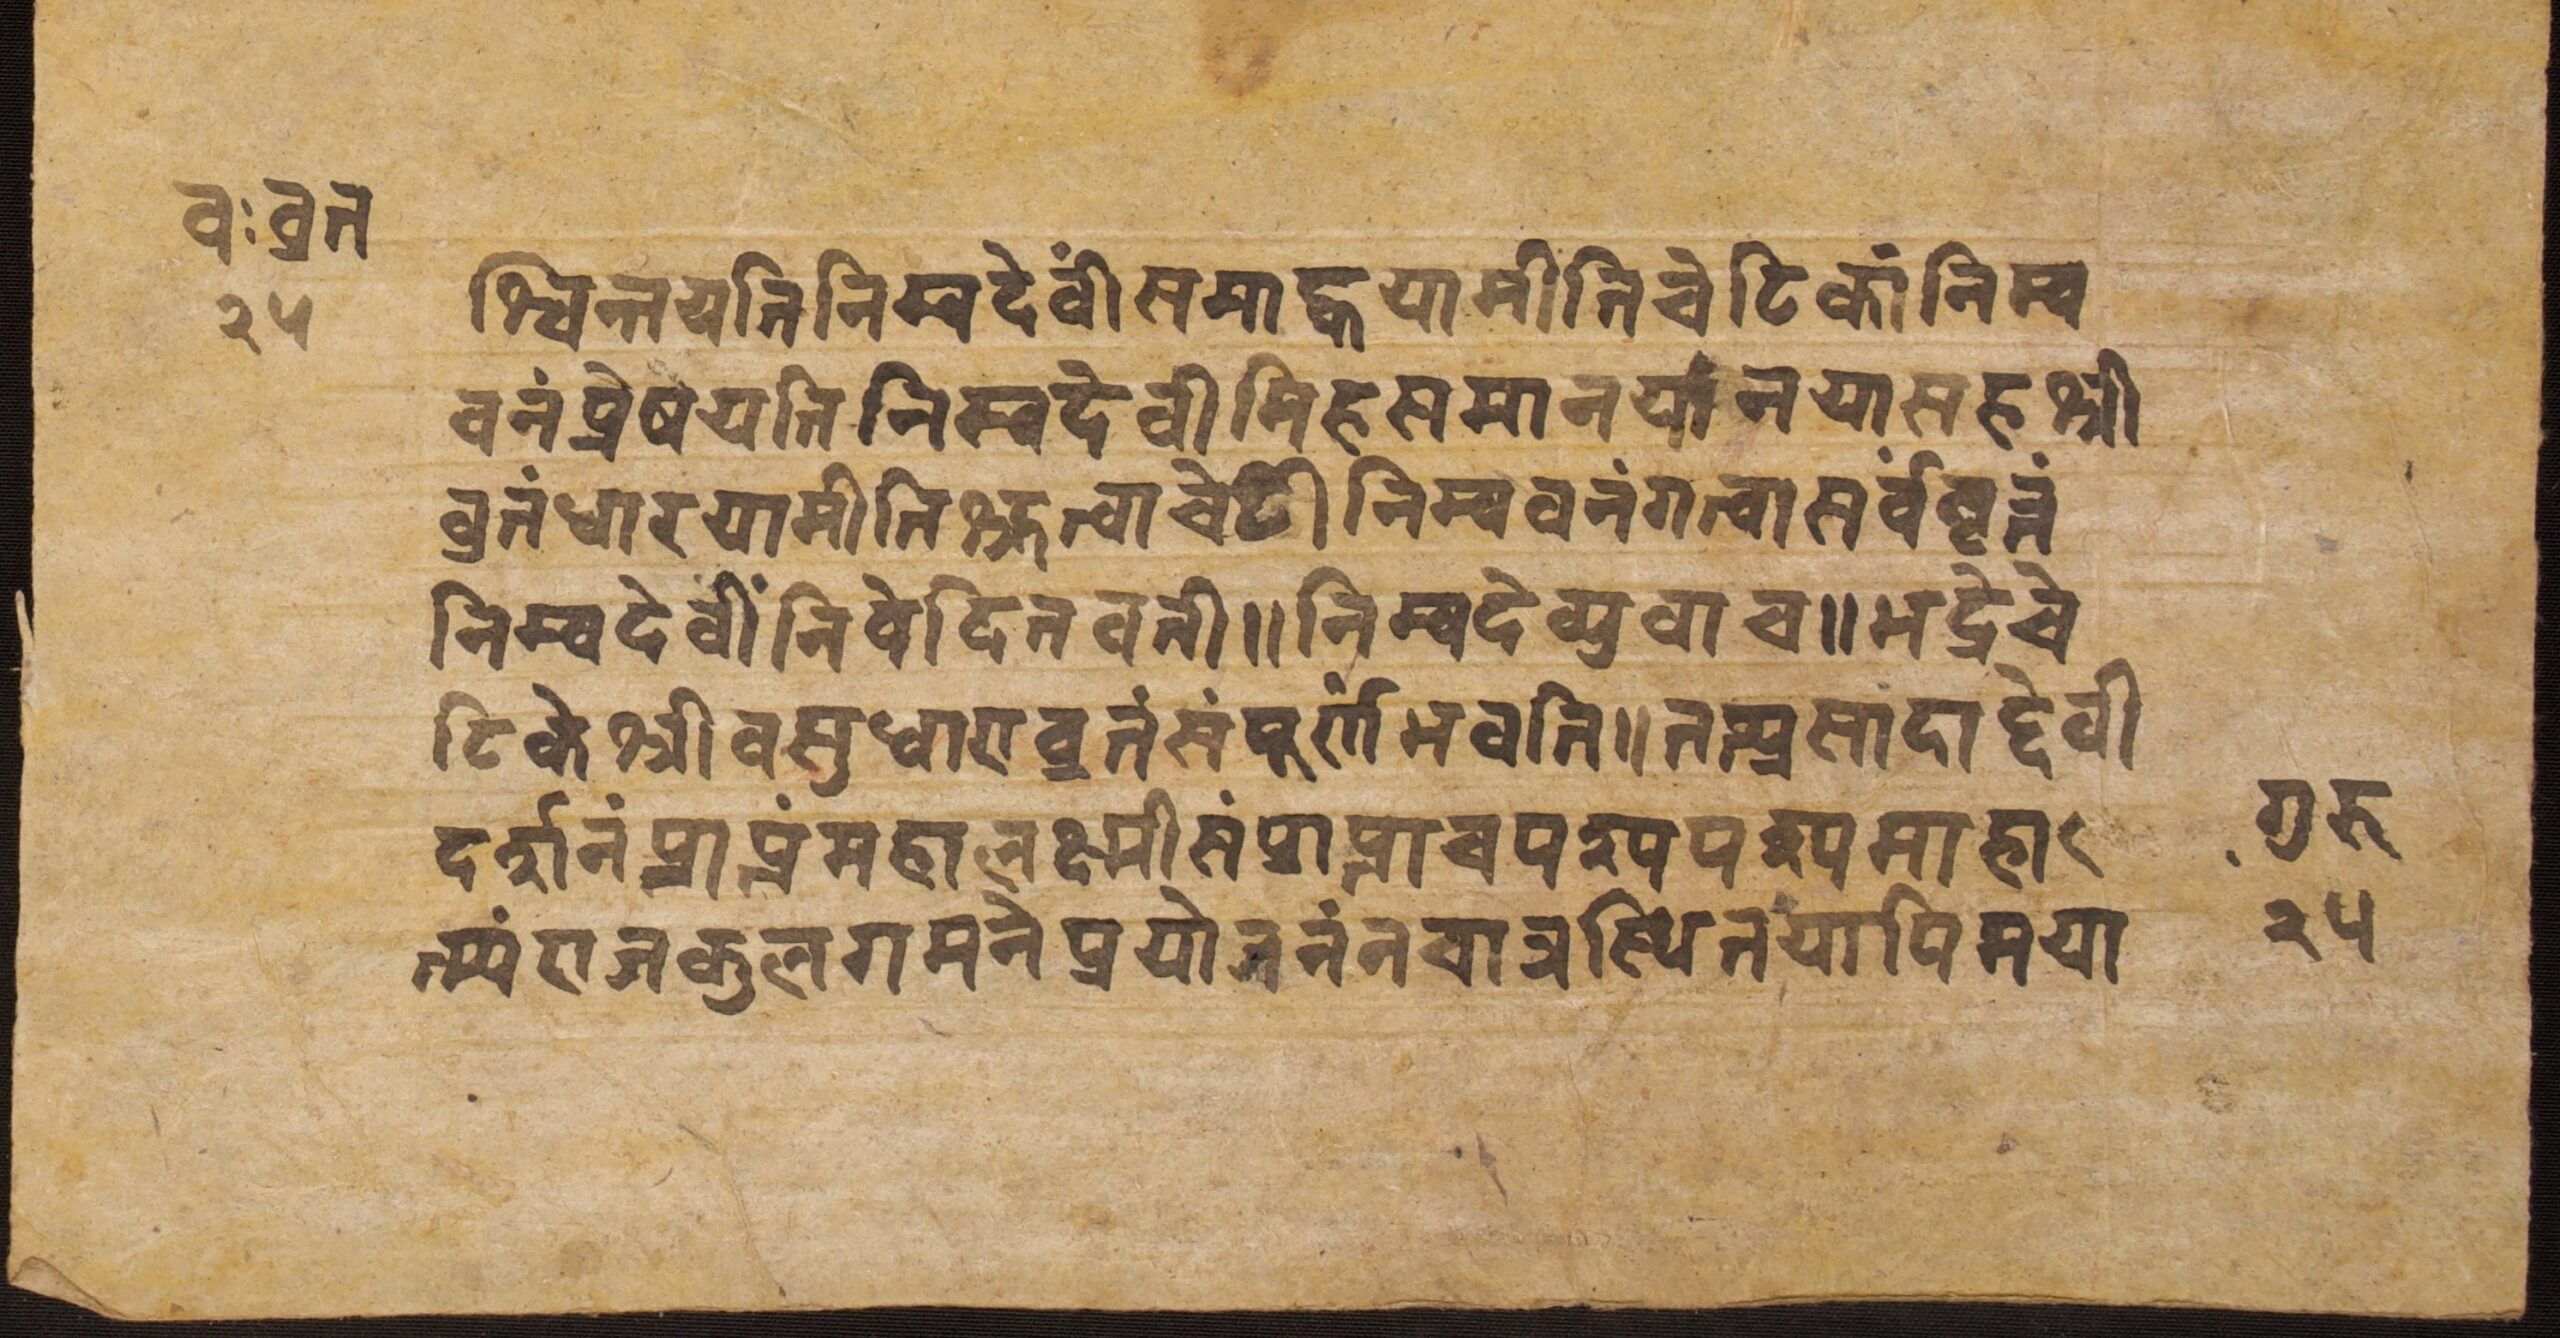 वः व्रत
२५
श्चिन्तयति निम्बदेवीं समाह्वयामीति चेटिकां निम्ब
वनं प्रेषयति निम्बदेवीमिह समानयानया सह श्री
व्रतं धारयामीति श्रुत्वा चेटी निम्बवनं गत्वा सर्ववृत्तं
निम्बदेवीं निवेदितवती॥ निम्बदेव्युवाच॥ भद्रे चे
टिके श्रीवसुधाराव्रतं संपूर्णं भवति॥ तत्प्रसादाद्देवी
दर्शनं प्राप्तं महालक्ष्मी संप्राप्ता च पश्य पश्य माहाऽ
त्म्यं राजकुलगमने प्रयोजनं न चात्र स्थितयापि मया
गुरु
२५